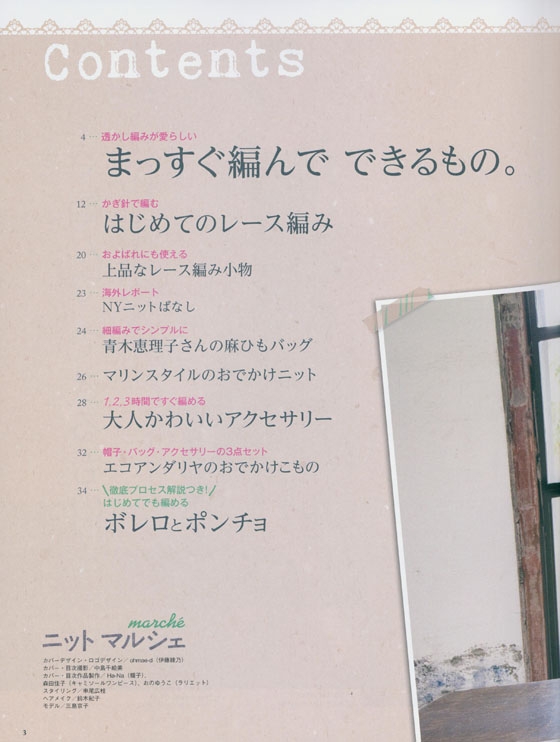 Contents
4 … 透かし編みが愛らしい
まっすぐ編んで できるもの。
12 … かぎ針で編む
はじめてのレース編み
20 … およばれにも使える
上品なレース編み小物
23 … 海外レポート
NYニットばなし
24 … 細編みでシンプルに
青木恵理子さんの麻ひもバッグ
26 … マリンスタイルのおでかけニット
28 … 1,2,3時間ですぐ編める
大人かわいいアクセサリー
32 … 帽子・バッグ・アクセサリーの3点セット
エコアンダリヤのおでかけこもの
34 … \徹底プロセス解説つき!/
はじめてでも編める
ボレロとポンチョ
marché
ニット マルシェ
カバーデザイン・ロゴデザイン／ohmae-d（伊藤綾乃）
カバー・目次撮影／中島千絵美
カバー・目次作品製作／Ha-Na（帽子）、
森田佳子（キャミソールワンピース）、おのゆうこ（ラリエット）
スタイリング／串尾広枝
ヘアメイク／鈴木紀子
モデル／三島京子
3